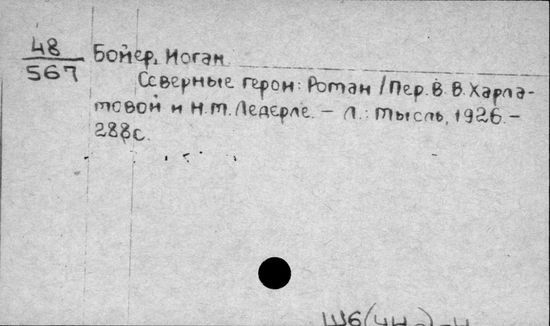 48
567
Бойер, Иоган
Северные герои: Роман / Пер. В. В. Харла-
мовой и Н. М. Ледерле. – Л.: Мысль, 1926. –
288с.